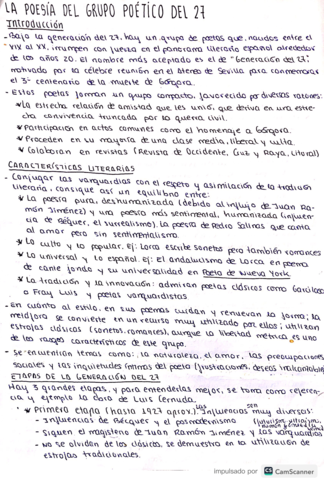 LA POESÍA DEL GRUPO POÉTICO DEL 27
Introducción
- Bajo la generación del 27, hay un grupo de poetas que, nacidos entre el
XIX al XX, irrumpen con fuerza en el panorama literario español alrededor
de los años 20. El nombre más aceptado es el de "Generación del 27",
motivado por la célebre reunión en el Ateneo de Sevilla, para conmemorar
el 3er centenario de la muerte de Góngora.
- Estos poetas forman un grupo compacto, favorecido por diversas razones:
La estrecha relación de amistad que les unió, que deriva en una estre-
cha convivencia truncada por la guerra civil.
Participación en actos comunes como el homenaje a Góngora.
Proceden en su mayoría de una clase media, liberal y culta.
Colaboran en revistas (Revista de Occidente, Cruz y Raya, Litoral)
CARACTERÍSTICAS LITERARIAS
- Conjugar las vanguardias con el respeto y asimilación de la tradición
literaria, consigue así un equilibrio entre:
La poesía pura, deshumanizada (debido al influjo de Juan Ra-
món Jiménez) y una poesía más sentimental, humanizada (influen-
cia de Bécquer, el surrealismo). La poesía de Pedro Salinas que canta
al amor pero sin sentimentalismo.
Lo culto y lo popular. Ej: Lorca escribe sonetos pero también romances
Lo universal y lo español. Ej: el andalucismo de Lorca en poema
de cante jondo y su universalidad en Poeta de Nueva York.
La tradición y la innovación: admiran poetas clásicos como Garcilaso
o Fray Luis y poetas vanguardistas
- En cuanto al estilo, en sus poemas cuidan y renuevan la forma; la
metáfora se convierte en un recurso muy utilizado por ellos; utilizan
estrofas clásicas (sonetos, romances), aunque la libertad métrica es uno
de los rasgos característicos de este grupo.
- Se encuentran temas como: la naturaleza, el amor, las preocupaciones
sociales y las inquietudes íntimas del poeta (frustraciones, deseos
ETAPAS DE LA GENERACIÓN DEL 27
Hay 3 grandes etapas, y para entenderlas mejor, se toma como referen-
cia y ejemplo la obra de Luis Cernuda.
Primera etapa (hasta 1927 aprox.). Las influencias son muy diversas:
- Influencias de Bécquer y el posmodernismo
- Siguen el magisterio de Juan Ramón Jiménez y las vanguardias
- No se olvidan de los clásicos, se demuestra en la utilización de
estrofas tradicionales.
impulsado por CS CamScanner